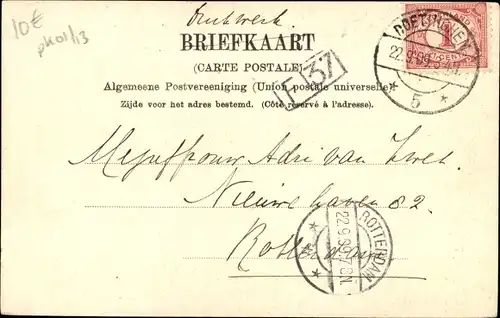 10€
pk01/13
Drukwerk
BRIEFKAART
(CARTE POSTALE)
Algemeene Postvereeniging (Union postale universelle)
Zijde voor het adres bestemd. (Côté réservé à l'adresse).
F 37
22.9.99
5
Mejuffrouw Adri van
Nieuwe haven 82.
Rotterdam
ROTTERDAM
22.9.99